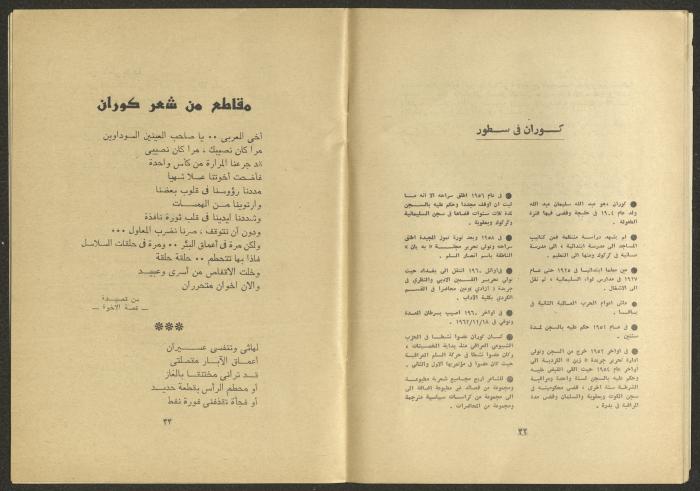 كوران في سطور
● كوران هو عبد الله سليمان عبد الله
ولد عام ١٩٠٤ في حلبجة وقضى فيها فترة
الطفولة .
● لم يشهد دراسة منتظمة فمن كتاتيب
المساجد الى مدرسة ابتدائية ، الى مدرسة
صناعية في كركوك ومنها الى التعليم .
● من معلما ابتدائيا في ١٩٢٥ حتى عام
١٩٣٧ في مدارس لواء السليمانية ، ثم نقل
الى الاشغال .
● عاش اعوام الحرب العالمية الثانية في
يافا .
● في عام ١٩٥١ حكم عليه بالسجن لمدة
سنتين .
● في اواخر ١٩٥٢ خرج من السجن وتولى
ادارة تحرير جريدة « ژين » الكردية الى
اواخر عام ١٩٥٤ حيث القي القبض عليه
وحكم عليه بالسجن لسنة واحدة ومراقبة
الشرطة سنة اخرى ، قضى محكوميته في
سجن الكوت وبعقوبة والسلمان وقضى مدة
المراقبة في بدرة .
● في عام ١٩٥٦ اطلق سراحه الا انه ما
لبث ان اوقف مجددا وحكم عليه بالسجن
لمدة ثلاث سنوات قضاها في سجن السليمانية
وكركوك وبعقوبة .
● وفي ١٩٥٨ وبعد ثورة تموز المجيدة اطلق
سراحه وتولى تحرير مجلة « به يان »
الناطقة باسم انصار السلم .
● في اوائل ١٩٦٠ انتقل الى بغداد حيث
تولى تحرير القسمين الادبي والنظري في
جريدة « ازادي » وعين محاضرا في القسم
الكردي بكلية الآداب .
● في اواخر ١٩٦٠ اصيب بسرطان المعدة
وتوفي في ١٩٦٢/١١/١٨ .
● كان كوران عضوا نشطا في الحزب
الشيوعي العراقي منذ بداية الخمسينات ،
وكان عضوا نشطا في حركة السلم العراقية
حيث كان عضوا في مؤتمريها الاول والثاني .
● للشاعر اربع مجاميع شعرية مطبوعة
ومجموعة من قصائد غير مطبوعة اضافة الى
الى مجموعة من كراسات سياسية مترجمة
ومجموعة من المحاضرات .
٣٢
مقاطع من شعر كوران
اخي العربي ٠٠ يا صاحب العينين السوداوين
مرا كان نصيبك ، مرا كان نصيبي
قد جرعنا المرارة من كأس واحدة
فأضحت أخوتنا عسلا شهيا
مددنا رؤوسنا في قلوب بعضنا
وارتوينا من الهمسات
وشددنا ايدينا في قلب ثورة نافذة
ودون أن نتوقف ، صرنا نضرب المعاول ٠٠٠
ولكن مرة في أعماق البئر ٠٠ ومرة في حلقات السلاسل
فاذا بها تتحطم ٠٠ حلقة حلقة
وخلت الاقفاص من أسرى وعبيد
والان اخوان متحرران
من قصيدة
ـ قصة الاخوة ـ
***
لهاثي وتنفسي عسيران
أعماق الآبار مقصلتي
قد تراني مختنقا بالغاز
أو محطم الرأس بقطعة حديد
أو فجأة تقذفني فورة نفط
٣٣